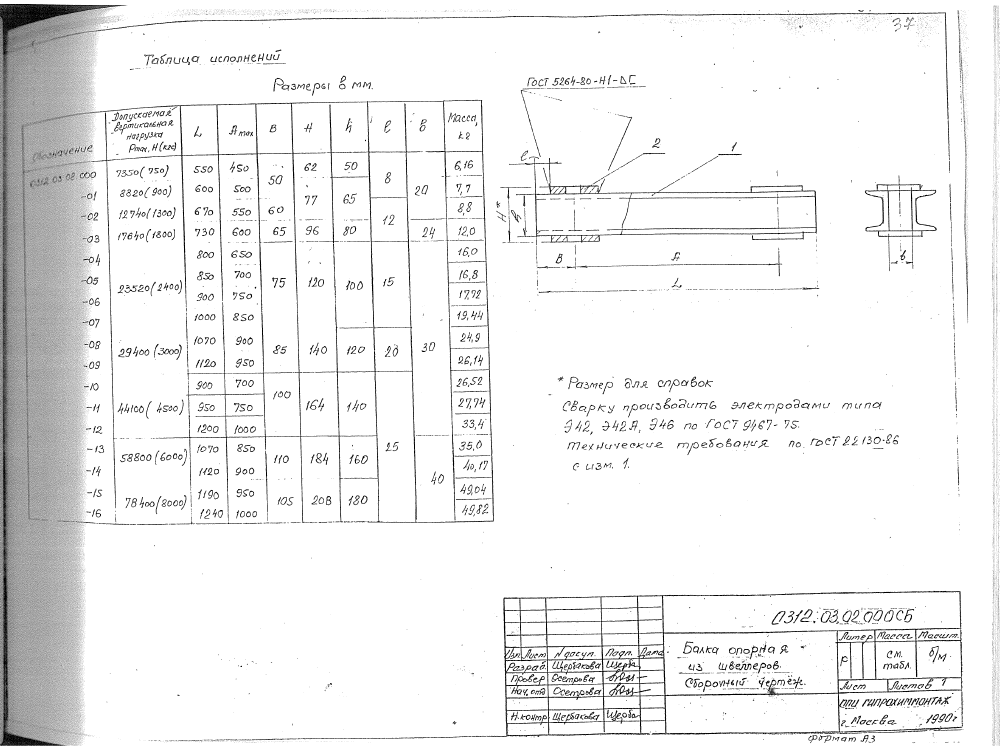 37
Таблица исполнений
Размеры в мм.
Обозначение Допускаемая вертикальная нагрузка Pmax, Н(кгс) L Amax B H h l b Масса, кг
0312.03.02.000 7350(750) 550 450 50 62 50 8 20 6,16
-01 8820(900) 600 500 77 65 7,7
-02 12740(1300) 670 550 60 12 8,8
-03 17640(1800) 730 600 65 96 80 24 12,0
-04 23520(2400) 800 650 75 120 100 15 30 16,0
-05 850 700 16,8
-06 900 750 17,72
-07 1000 850 19,44
-08 29400(3000) 1070 900 85 140 120 20 24,9
-09 1120 950 26,14
-10 44100(4500) 900 700 100 164 140 25 26,52
-11 950 750 27,74
-12 1200 1000 33,4
-13 58800(6000) 1070 850 110 184 160 40 35,0
-14 1120 900 40,17
-15 78400(8000) 1190 950 105 208 180 49,04
-16 1240 1000 49,82
ГОСТ 5264-80-Н1-△Г
l 2 1
H* h
B A b
L
* Размер для справок
Сварку производить электродами типа
Э42, Э42А, Э46 по ГОСТ 9467-75.
Технические требования по ГОСТ 22130-86
с изм. 1.
0312.03.02.000СБ
Балка опорная
из швеллеров.
Сборочный чертёж.
Литер Масса Масшт.
Р см. табл. б/м
Лист Листов 1
Изм Лист N докум. Подп. Дата
Разраб Щербакова Щерба
Провер Осетрова
Нач.отд Осетрова
Н.контр Щербакова Щерба
ОПИ ГИПРОХИММОНТАЖ
г. Москва 1990г
Формат А3